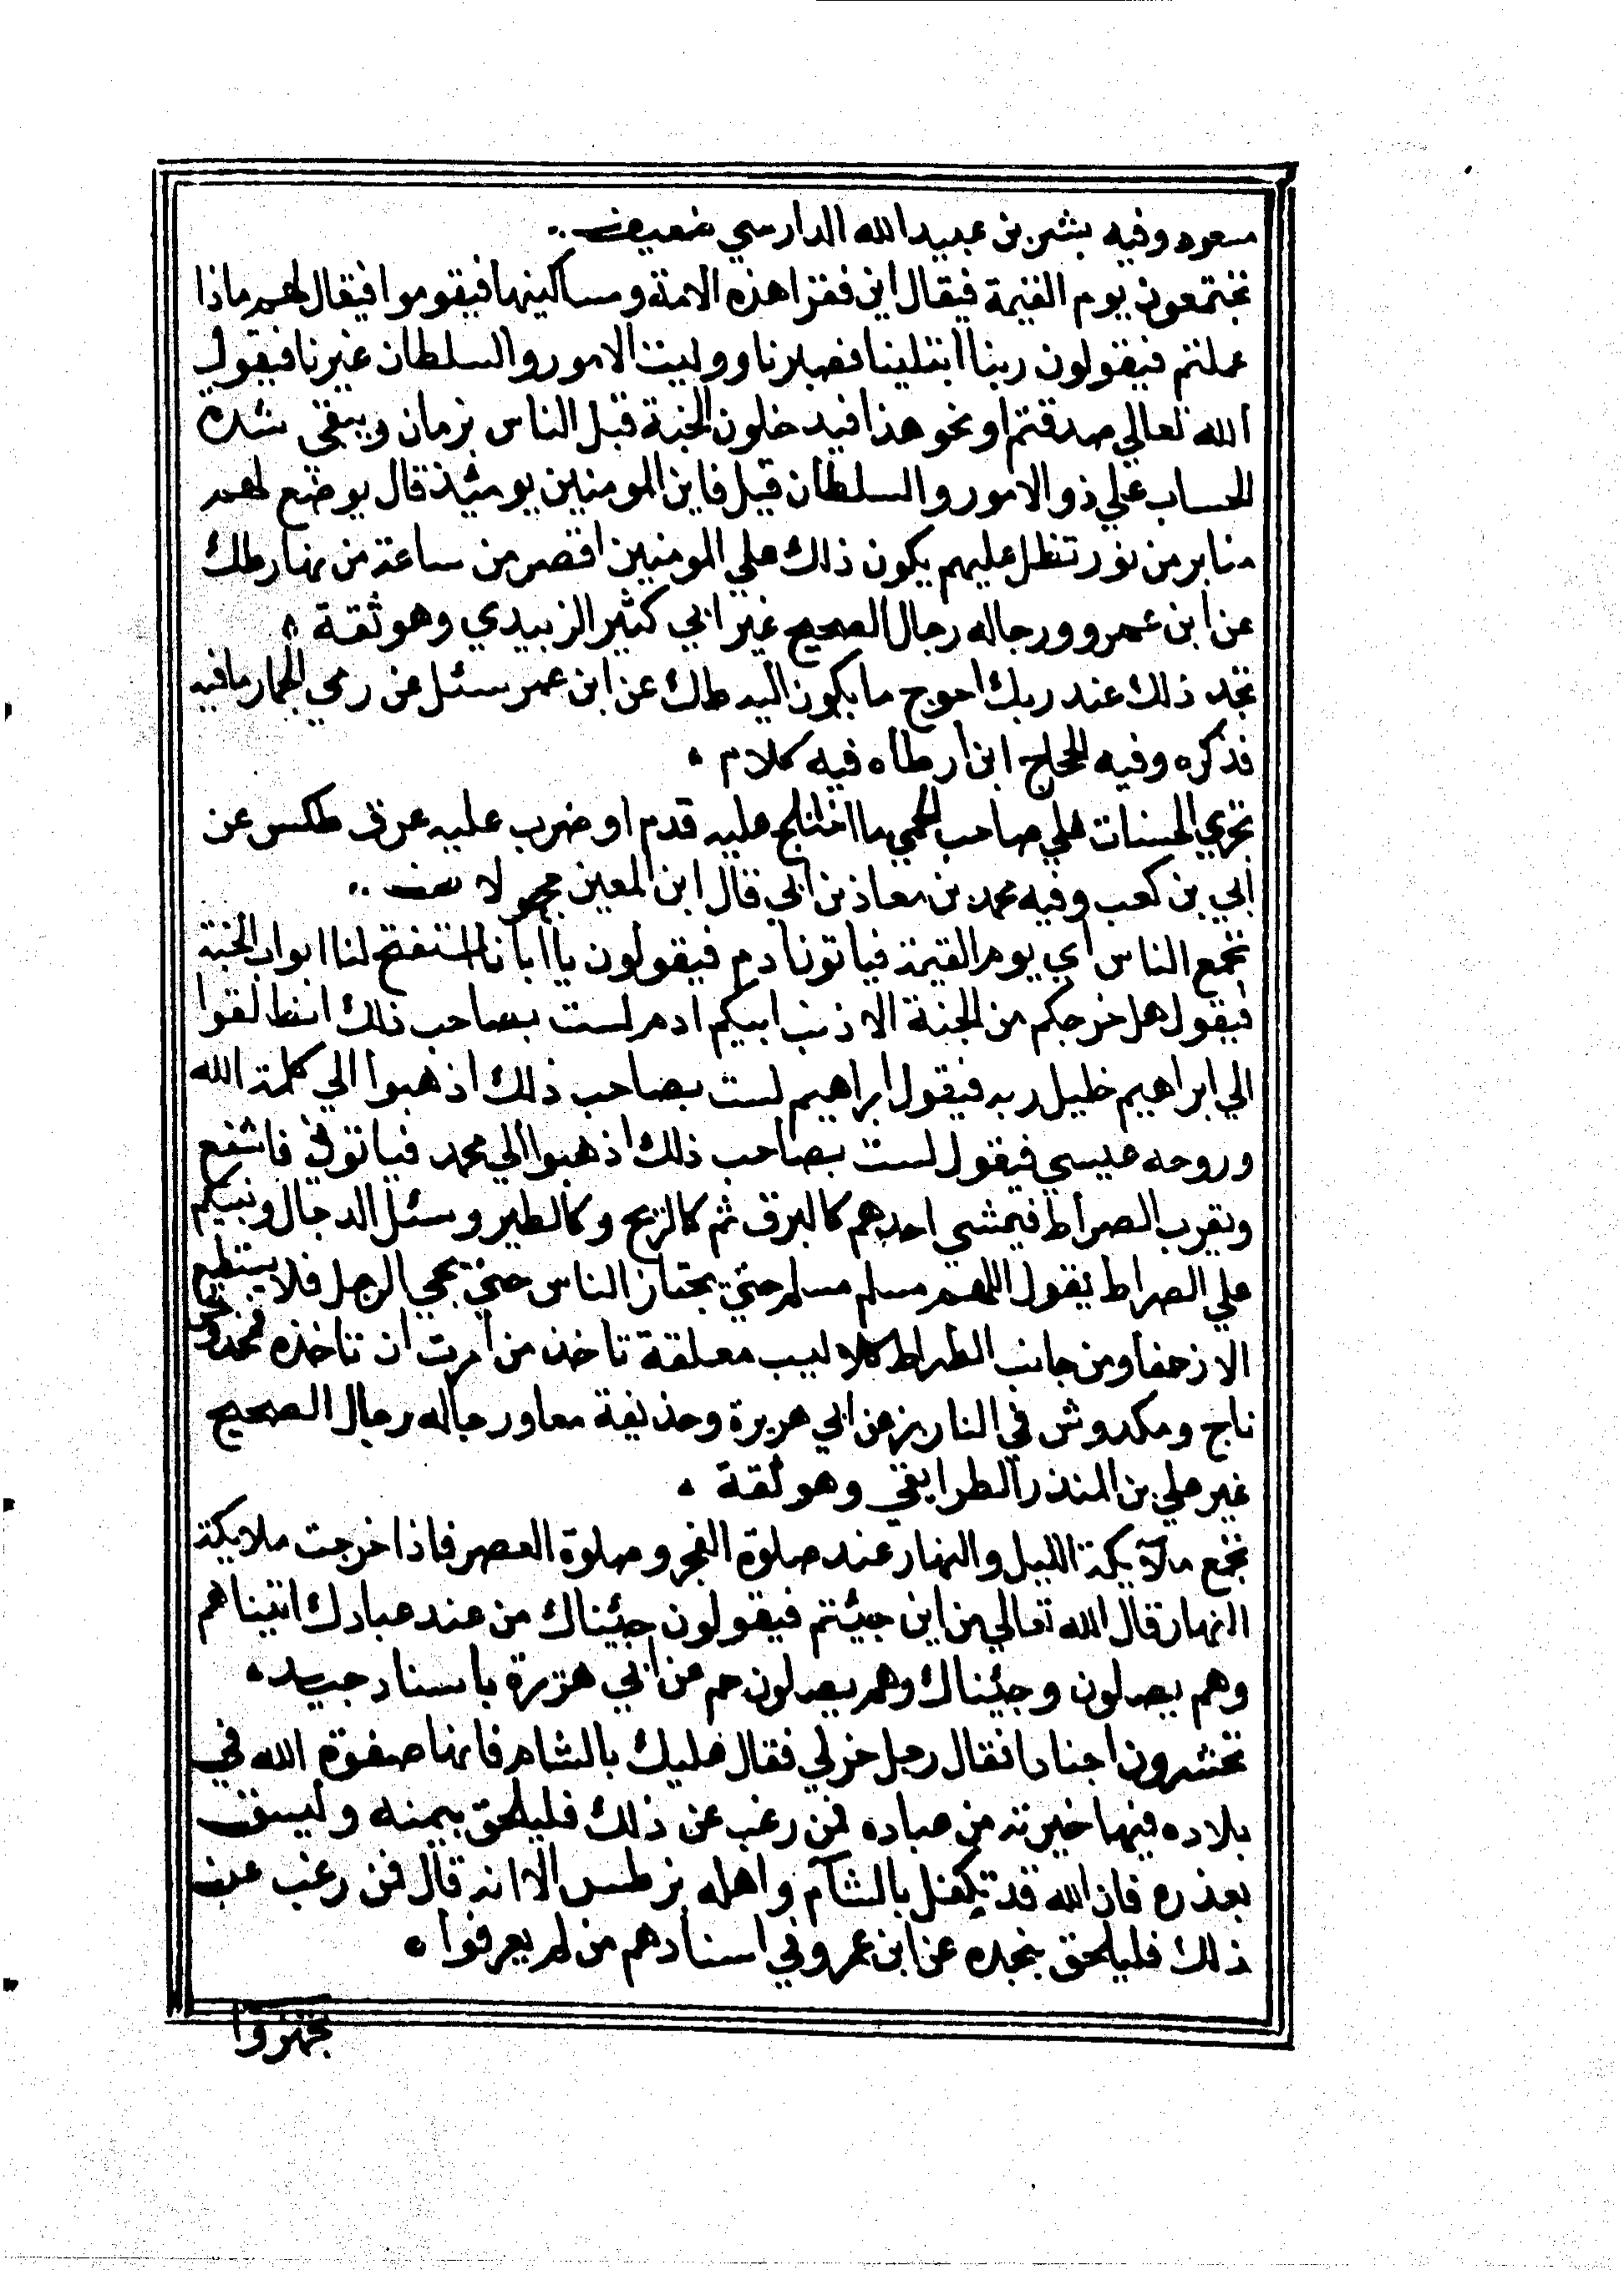 مسعود وفيه بشر بن عبيد الله الدارسي ضعيف..
تجتمعون يوم القيمة فيقال اين فقرا هذه الامة ومساكينها فيقوموا فيقال لهم ماذا
عملتم فيقولون ربنا ابتلينا فصبرنا ووليت الامور والسلطان غيرنا فيقول
الله تعالي صدقتم او نحو هذا فيدخلون الجنة قبل الناس بزمان ويبقي شدة
الحساب علي ذو الامور والسلطان قيل فاين المومنين يومئذ قال يوضع لهم
منابر من نور تظل عليهم يكون ذلك علي المومنين اقصر من ساعة من نهار طك
عن ابن عمرو ورجاله رجال الصحيح غير ابي كثير الزبيدي وهو ثقة ه
تجد ذلك عند ربك احوج ما يكون اليه طك عن ابن عمر سئل عن رمي الجمار ما فيه
فذكره وفيه الحجاج ابن ارطاه فيه كلام ه
تجري الحسنات علي صاحب الحمي ما اختلج عليه قدم او ضرب عليه عرق طكس عن
ابي بن كعب وفيه محمد بن معاذ بن ابي قال ابن المعين مجهولا ..
تجمع الناس اي يوم القيمة فياتون ادم فيقولون يا ابانا استفتح لنا ابواب الجنة
فيقول هل اخرجكم من الجنة الا ذنب ابيكم ادم لست بصاحب ذلك انطلقوا
الي ابراهيم خليل ربه فيقول ابراهيم لست بصاحب ذلك اذهبوا الي كلمة الله
وروحه عيسي فيقول لست بصاحب ذلك اذهبوا الي محمد فياتوني فاشفع
ويقرب الصراط فيمشي احدهم كالبرق ثم كالريح وكالطير وسئل الدجال ونبيكم
علي الصراط يقول اللهم مسلم مسلم حتي يجتاز الناس حتي يجي الرجل فلا يستطيع
الا زحفا ومن جانب الطراط كلاليب معلقة تاخذ من امرت ان تاخذه فمخدوش
ناج ومكدوش في النار بز عن ابي هريرة وحذيفة معا ورجاله رجال الصحيح
غير علي بن المنذر الطرايقي وهو ثقة ه
تجمع ملآيكة الليل والنهار عند صلوة الفجر وصلوة العصر فاذا خرجت ملايكة
النهار قال الله تعالي من اين جيئتم فيقولون جيئناك من عند عبادك اتيناهم
وهم يصلون وجيئناك وهم يصلون حم عن ابي هريرة باسناد جيد ه
تحشرون اجنادا فقال رجل خر لي فقال عليك بالشام فانها صفوة الله في
بلاده فيها خيرته من عباده فمن رغب عن ذلك فليلحق بيمنه وليسق
بعذره فان الله قد تكفل بالشآم واهله بز طس الا انه قال فمن رغب عن
ذلك فليلحق بنجده عن ابن عمر وفي اسنادهم من لم يعرفوا ه